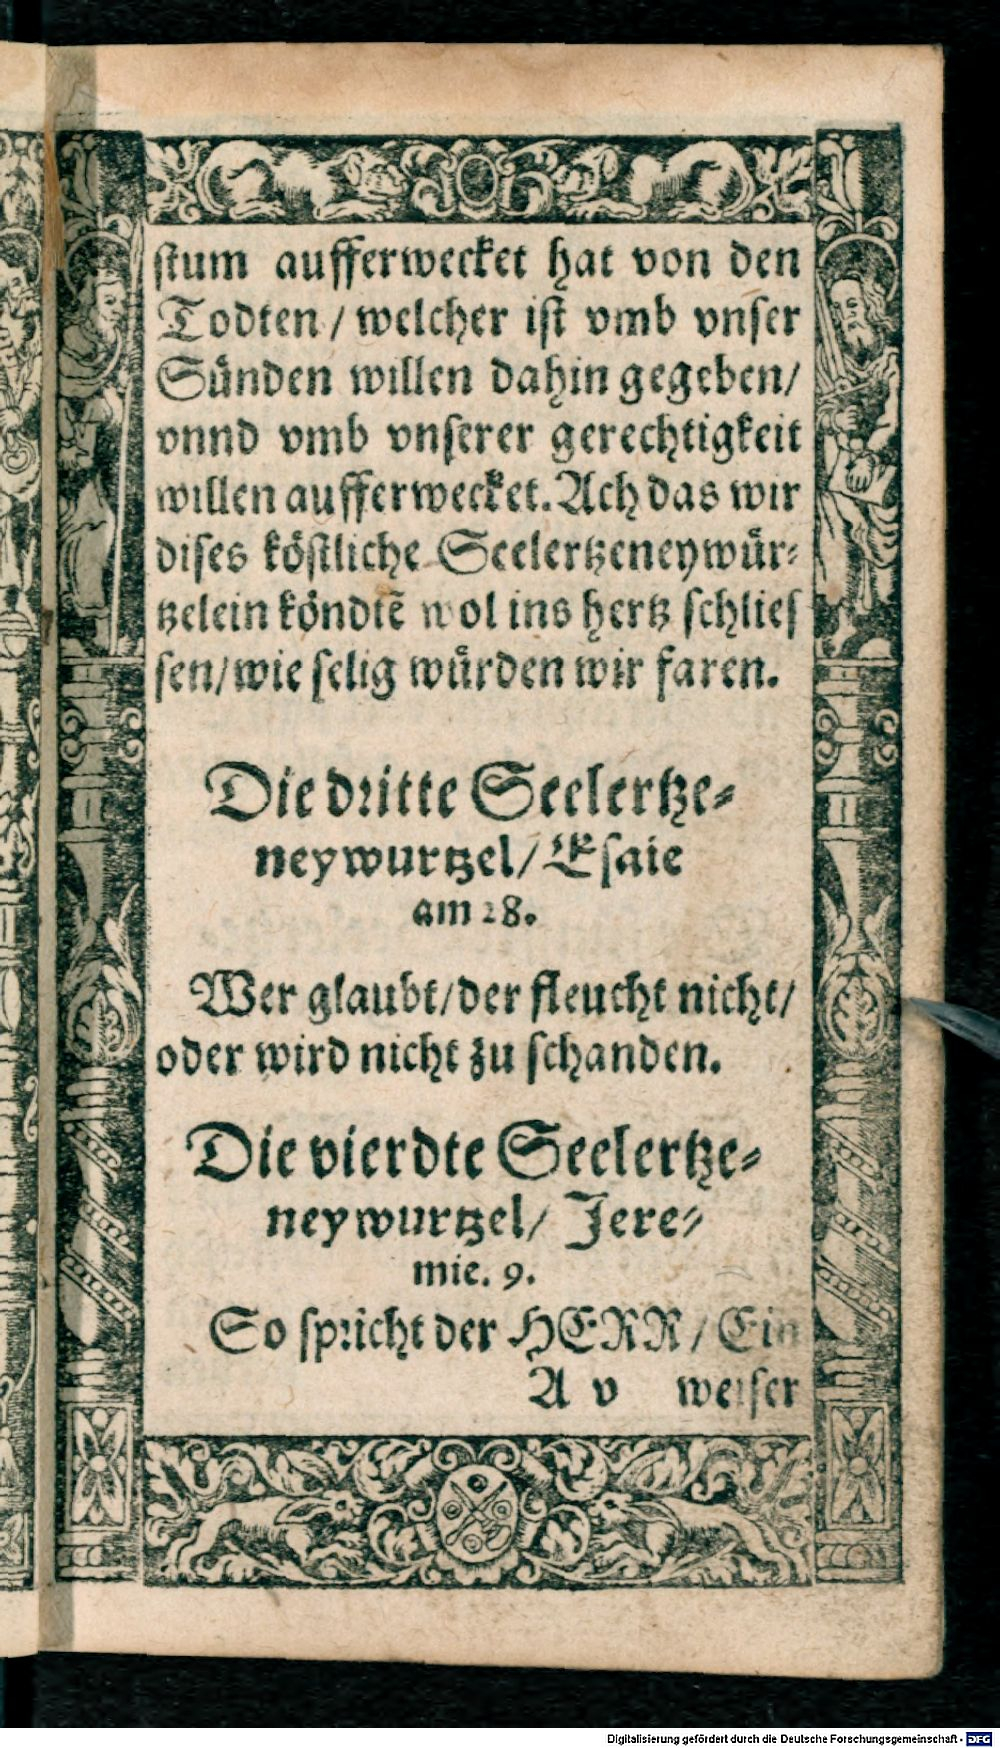 stum aufferwecket hat von den
Todten / welcher ist vmb vnser
Sünden willen dahin gegeben /
vnnd vmb vnserer gerechtigkeit
willen aufferwecket. Ach das wir
dises köstliche Seelertzeneywür⸗
tzelein köndtē wol ins hertz schlies
sen / wie selig würden wir faren.
Die dritte Seelertze⸗
neywurtzel / Esaie
am 28.
Wer glaubt / der fleucht nicht /
oder wird nicht zu schanden.
Die vierdte Seelertze⸗
neywurtzel / Jere⸗
mie. 9.
So spricht der HERR / Ein
A v weiser
Digitalisierung gefördert durch die Deutsche Forschungsgemeinschaft - DFG